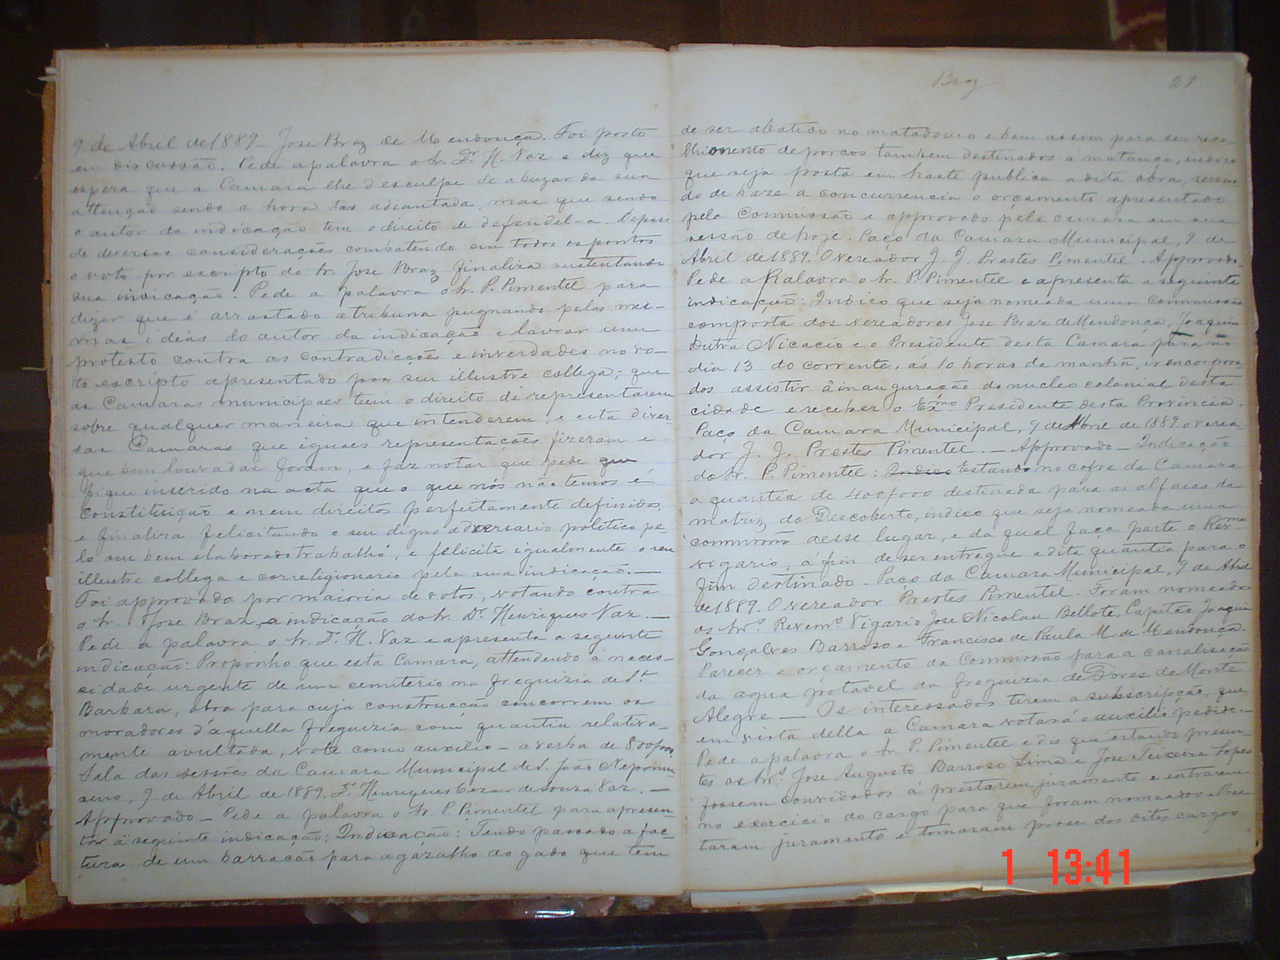 9 de Abril de 1889. Jose Braz de Mendonça. Foi posto
em discussão. Pede a palavra o Sr. Dr. H. Vaz e diz que
espera que a Camara lhe desculpe de abuzar da sua
attenção sendo a hora tão adiantada, mas que sendo
o autor da indicação tem o direito de defendel-a. Depois
de diversas considerações combatendo em todos os pontos
o voto por escripto do Sr. Jose Braz finaliza sustentando
sua indicação. Pede a palavra o Sr. P. Pimentel para
dizer que é arrastado a tribuna pugnando pelas mes-
mas idéas do autor da indicação e lavrar um
protesto contra as contradicções e inverdades no vo-
to escripto apresentado por seu illustre collega; que
as Camaras municipaes tem o direito de representarem
sobre qualquer maneira que intenderem, e cita diver-
sas Camaras que iguaes representações fizeram e
que bem louvadas foram, e faz notar que pede que
fique inserido na acta que o que nós não temos é
constituição e nem direitos perfeitamente definidos,
e finaliza felicitando o seu digno adversario politico pe-
lo seu bem elaborado trabalho, e felicita igualmente o seu
illustre collega e correligionario pela sua indicação. —
Foi approvado por maioria de votos, votando contra
o Sr. Jose Braz, a indicação do Sr. Dr. Henriques Vaz. —
Pede a palavra o Sr. Dr. H. Vaz e apresenta a seguinte
indicação: Proponho que esta Camara, attendendo á neces-
sidade urgente de um cemiterio na freguizia de Sta.
Barbara, obra para cuja construcção concorrem os
moradores d'aquella freguizia com quantia relativa-
mente avultada, vote como auxilio - a verba de 800$000
Sala das sessões da Camara Municipal de S. João Nepomu-
ceno, 9 de Abril de 1889. Dr. Henriques Cezar de Souza Vaz. —
Approvado - Pede a palavra o Sr. P. Pimentel para apresen-
tar a seguinte indicação: Indicação: Tendo passado a fac-
tura de um barracão para agazalho do gado que tem
Braz
28
de ser abatido no matadouro e bem assim para ser reco-
lhimento de porcos tambem destinados a matança, indico
que seja posta em haste publica a dita obra, servin-
do de baze a concurrencia o orçamento apresentado
pela Commissão e approvado pela camara em sua
sessão de hoje. Paço da Camara Municipal, 9 de
Abril de 1889. O vereador J. J. Prestes Pimentel. Approvado
Pede a palavra o Sr. P. Pimentel e apresenta a seguinte
indicação: Indico que seja nomeada uma Commissão
composta dos vereadores Jose Braz de Mendonça, Joaquim
Dutra Nicacio e o Presidente desta Camara para no
dia 13 do corrente, as 10 horas da manhã, incorpora-
dos assistir á inauguração do nucleo colonial desta
cidade e receber o Exmo Presidente desta Provincia.
Paço da Camara Municipal, 9 de Abril de 1889. o verea-
dor J. J. Prestes Pimentel. — Approvado — Indicação
do Sr. P. Pimentel: Indico Estando no cofre da Camara
a quantia de 400$000 destinada para as alfaias da
matriz do Descoberto, indico que seja nomeada uma
commissão desse lugar, e da qual faça parte o Revmo
vigario, á fim de ser entregue a dita quantia para o
fim destinado. Paço da Camara Municipal, 9 de Abril
de 1889. O vereador Prestes Pimentel. Foram nomeados
os Srs. Revemo. Vigario Jose Nicolau Bellote, Capitão Joaquim
Gonçalves Barroso e Francisco de Paula M. de Mendonça.
Parecer e orçamento da Commissão para a canalisação
da agua potavel da freguizia de Dores do Monte
Alegre — Os interessados tirem a subscripção, que
em vista della a Camara votará o auxilio pedido. -
Pede a palavra o Sr. P. Pimentel e dis que estando presen-
tes os Srs. Jose Augusto Barroso Lima e Jose Teixeira Lopes
fossem convidados a prestarem juramento e entrarem
no exercicio do cargo para que foram nomeados. Pres-
taram juramento e tomaram posse dos ditos cargos
1 13:41